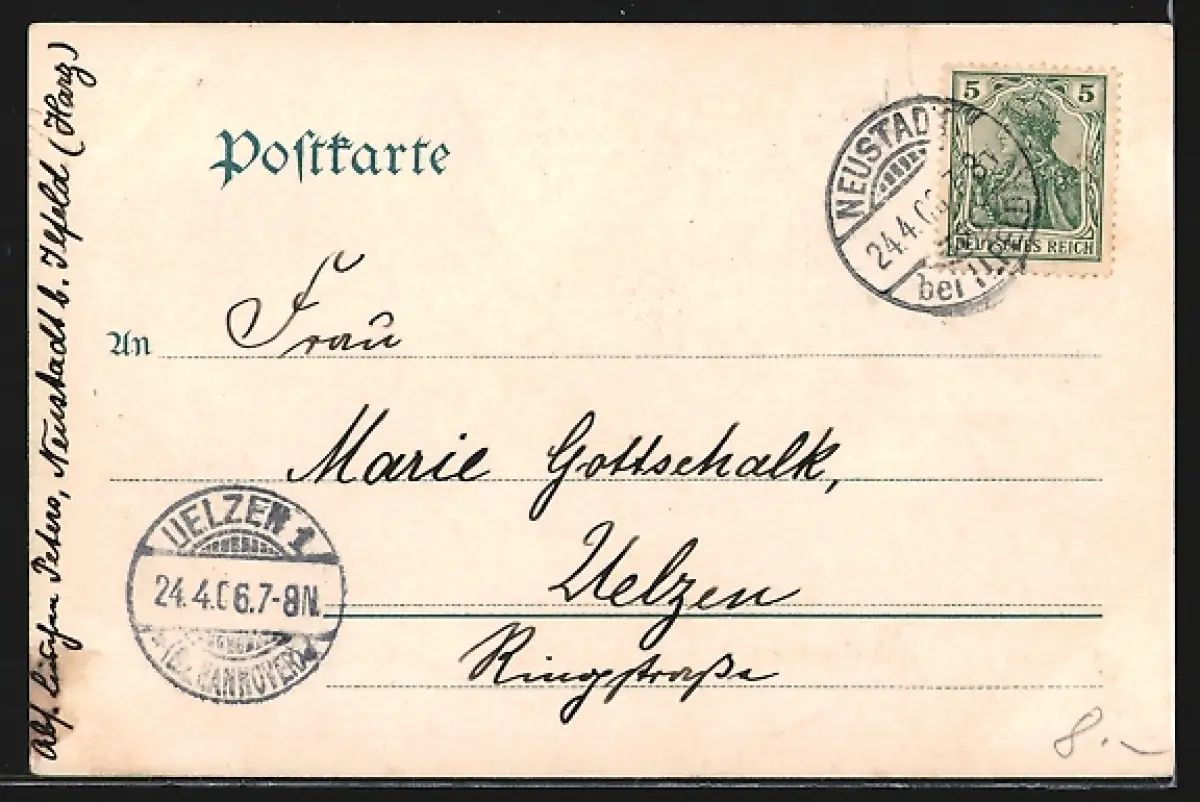 Postkarte
5 5
DEUTSCHES REICH
NEUSTADT
24.4.06 7-8
bei
An Frau
Marie Gottschalk,
Uelzen
Ringstraße
UELZEN 1
24.4.06.7-8N.
HANNOVER)
Abs. Peters, Neustadt b. Ilfeld (Harz)
8.-